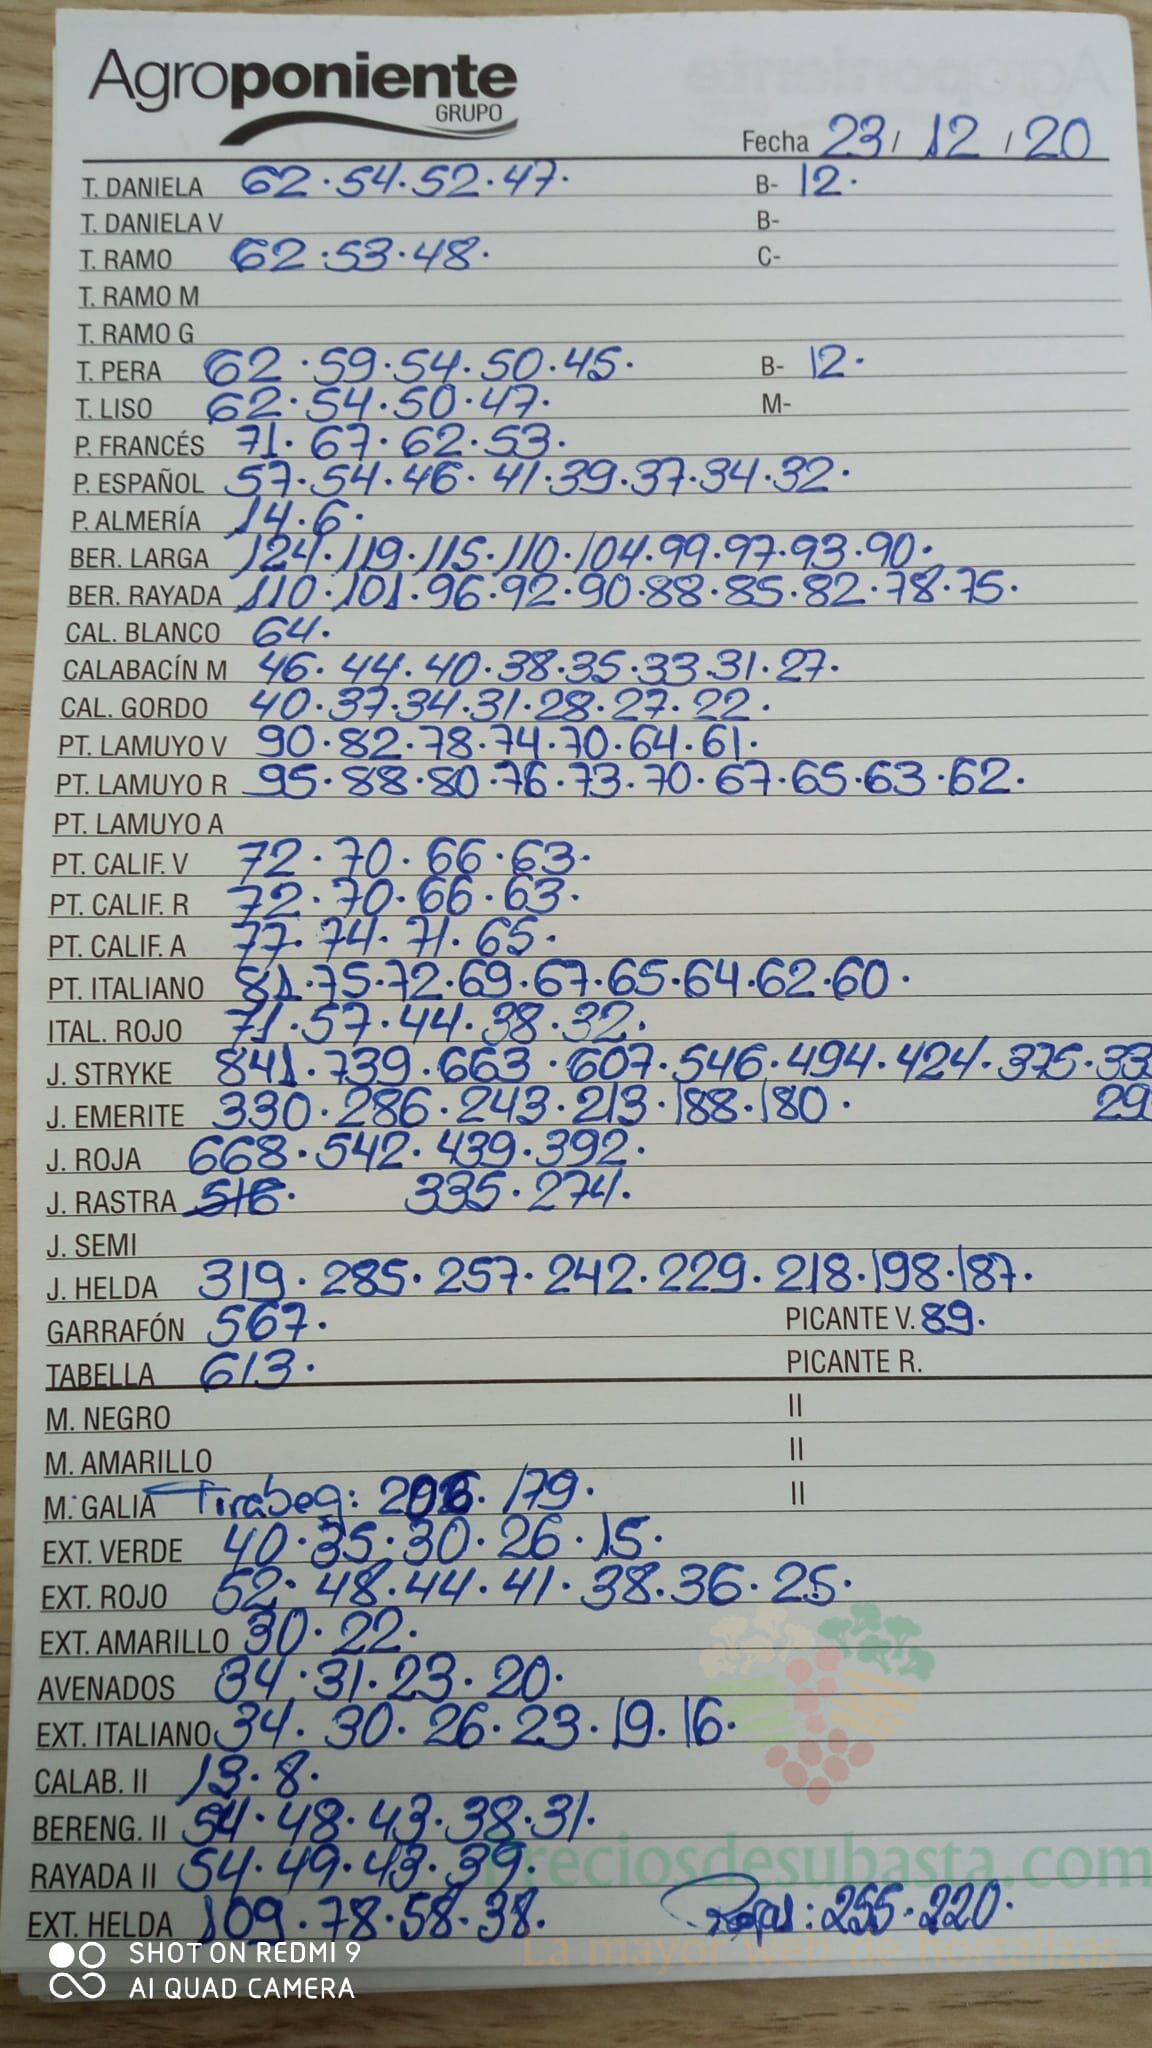 Agroponiente
GRUPO
Fecha 23/ 12 / 20
T. DANIELA 62·54·52·47· B- 12·
T. DANIELA V B-
T. RAMO 62·53·48· C-
T. RAMO M
T. RAMO G
T. PERA 62·59·54·50·45· B- 12·
T. LISO 62·54·50·47· M-
P. FRANCÉS 71·67·62·53·
P. ESPAÑOL 57·54·46·41·39·37·34·32·
P. ALMERÍA 14·6·
BER. LARGA 124·119·115·110·104·99·97·93·90·
BER. RAYADA 110·101·96·92·90·88·85·82·78·75·
CAL. BLANCO 64·
CALABACÍN M 46·44·40·38·35·33·31·27·
CAL. GORDO 40·37·34·31·28·27·22·
PT. LAMUYO V 90·82·78·74·70·64·61·
PT. LAMUYO R 95·88·80·76·73·70·67·65·63·62·
PT. LAMUYO A
PT. CALIF. V 72·70·66·63·
PT. CALIF. R 72·70·66·63·
PT. CALIF. A 77·74·71·65·
PT. ITALIANO 81·75·72·69·67·65·64·62·60·
ITAL. ROJO 71·57·44·38·32·
J. STRYKE 841·739·663·607·546·494·424·375·33
J. EMERITE 330·286·243·213·188·180· 29
J. ROJA 668·542·439·392·
J. RASTRA 516· 335·274·
J. SEMI
J. HELDA 319·285·257·242·229·218·198·187·
GARRAFÓN 567· PICANTE V. 89·
TABELLA 613· PICANTE R.
M. NEGRO II
M. AMARILLO II
M. GALIA Tirabeg: 206·179· II
EXT. VERDE 40·35·30·26·15·
EXT. ROJO 52·48·44·41·38·36·25·
EXT. AMARILLO 30·22·
AVENADOS 34·31·23·20·
EXT. ITALIANO 34·30·26·23·19·16·
CALAB. II 13·8·
BERENG. II 54·48·43·38·31·
RAYADA II 54·49·43·39·
Preciosdesubasta.com
EXT. HELDA 109·78·58·38· 255·220·
La mayor web de hortalizas
SHOT ON REDMI 9
AI QUAD CAMERA